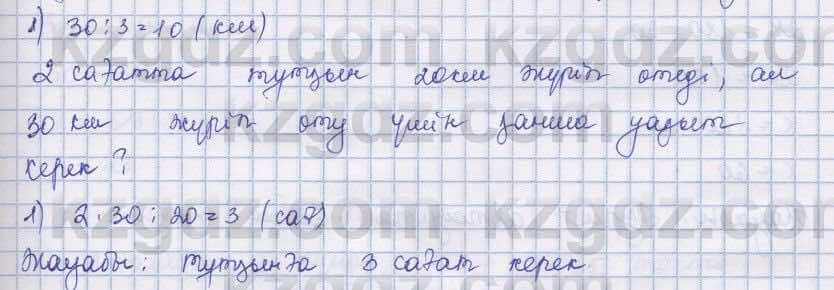 1) 30 : 3 = 10 (км)
2 сағатта тұтқын 20км жүріп өтеді, ал
30 км жүріп өту үшін қанша уақыт
керек?
1) 2 · 30 : 20 = 3 (сағ)
Жауабы: тұтқынға 3 сағат керек.
kzgdz.com kzgdz.com
kzgdz.com kzgdz.com